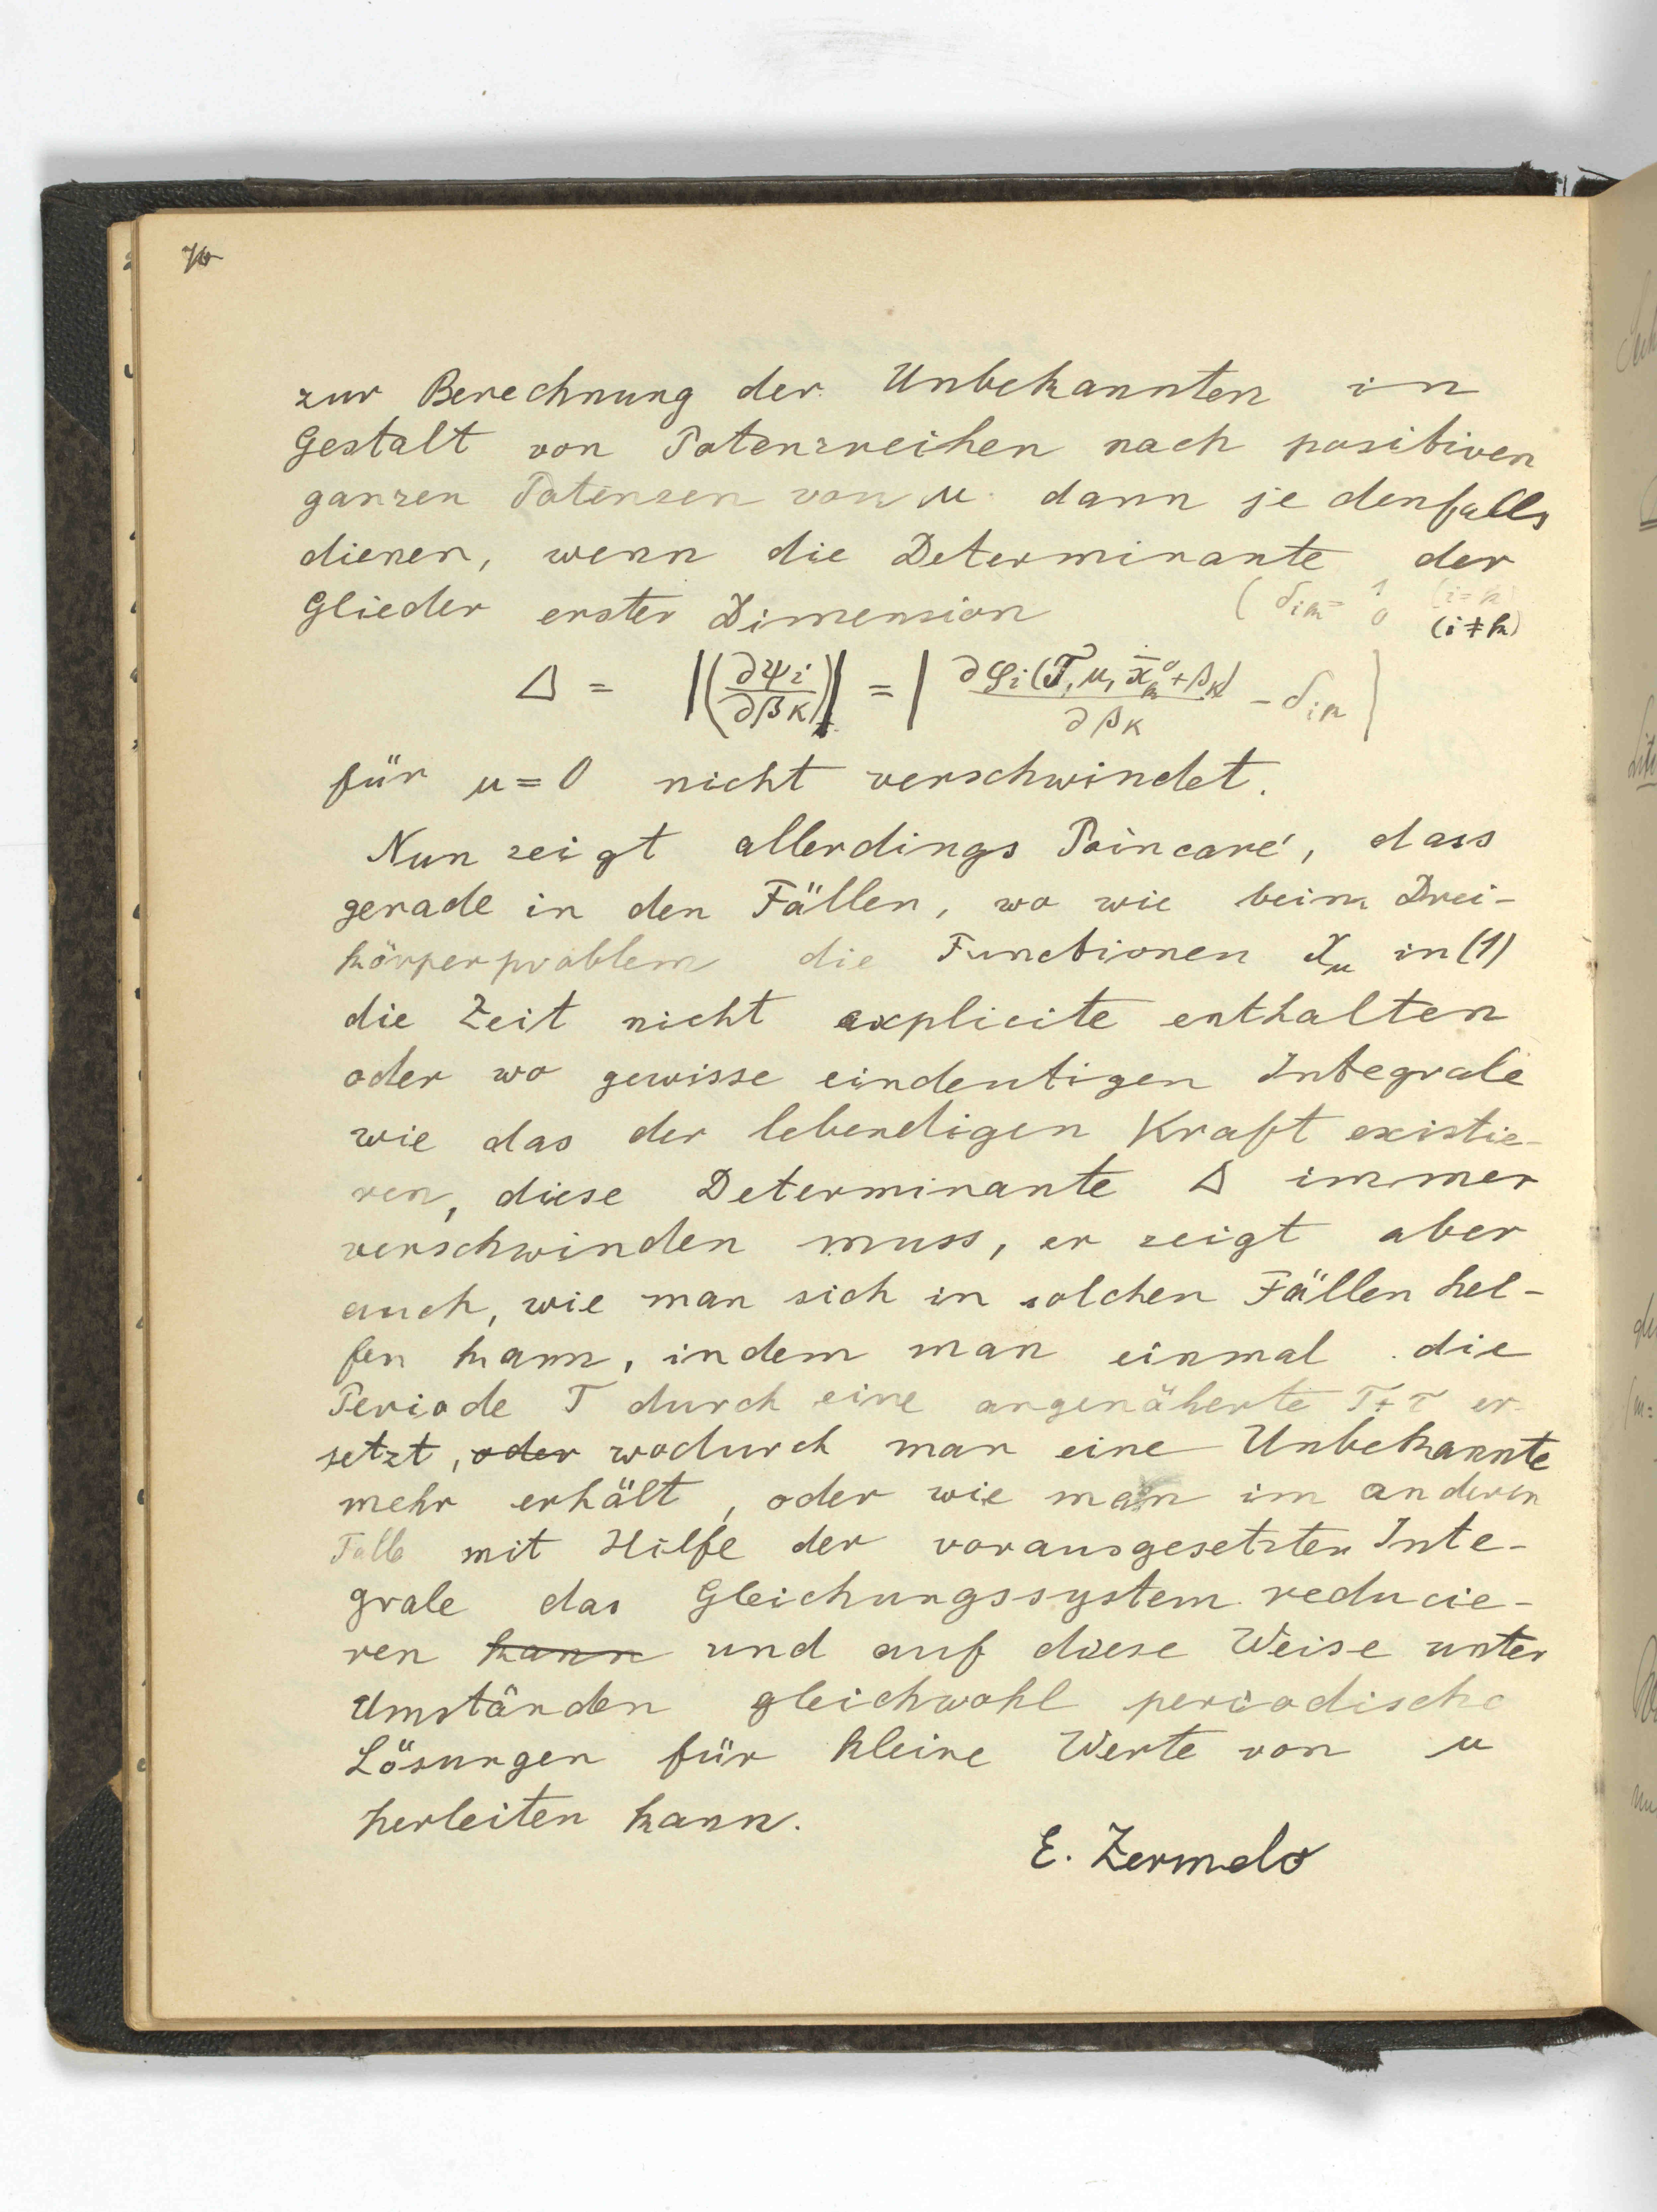 76
zur Berechnung der Unbekannten in
Gestalt von Potenzreihen nach positiven
ganzen Potenzen von μ dann jedenfalls
dienen, wenn die Determinante der
Glieder erster Dimension (δik = 1 (i=k)
0 (i≠k)
Δ = |(∂ψi/∂βκ)| = | ∂φi(T, μ, x̄k⁰+βκ)/∂βκ − δik |
für μ=0 nicht verschwindet.
Nun zeigt allerdings Poincaré, dass
gerade in den Fällen, wo wie beim Drei-
körperproblem die Functionen Xμ in (1)
die Zeit nicht explicite enthalten
oder wo gewisse eindeutigen Integrale
wie das der lebendigen Kraft existie-
ren, diese Determinante Δ immer
verschwinden muss, er zeigt aber
auch, wie man sich in solchen Fällen hel-
fen kann, indem man einmal die
Periode T durch eine angenäherte T+τ er-
setzt, oder wodurch man eine Unbekannte
mehr erhält, oder wie man im anderen
Falle mit Hilfe der vorausgesetzten Inte-
grale das Gleichungssystem reducie-
ren kann und auf diese Weise unter
Umständen gleichwohl periodische
Lösungen für kleine Werte von μ
herleiten kann.
E. Zermelo